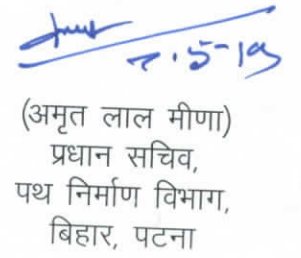 7.5-19
(अमृत लाल मीणा)
प्रधान सचिव,
पथ निर्माण विभाग,
बिहार, पटना